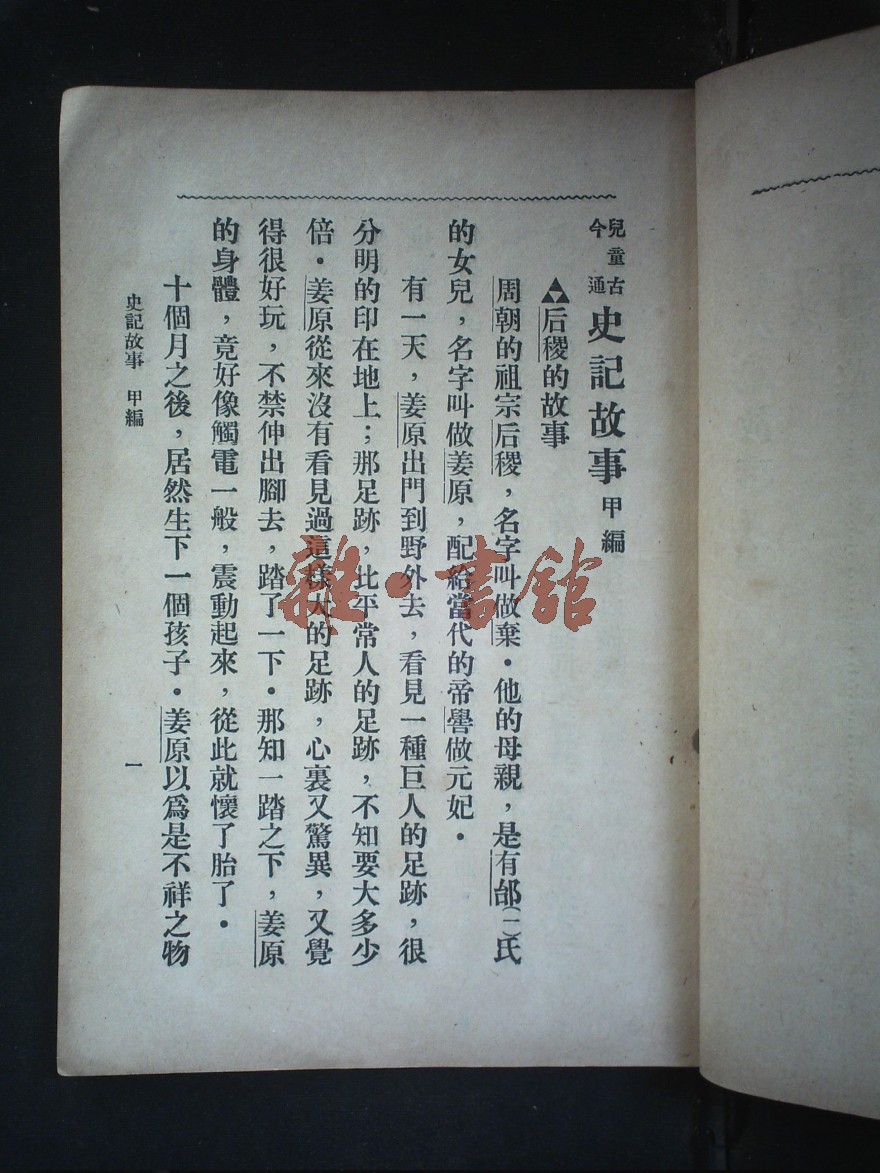 兒童古今通 史記故事 甲編
后稷的故事
周朝的祖宗后稷，名字叫做棄．他的母親，是有邰(一)氏
的女兒，名字叫做姜原，配給當代的帝嚳做元妃．
有一天，姜原出門到野外去，看見一種巨人的足跡，很
分明的印在地上；那足跡，比平常人的足跡，不知要大多少
倍．姜原從來沒有看見過這樣大的足跡，心裏又驚異，又覺
得很好玩，不禁伸出腳去，踏了一下．那知一踏之下，姜原
的身體，竟好像觸電一般，震動起來，從此就懷了胎了．
十個月之後，居然生下一個孩子．姜原以爲是不祥之物
史記故事 甲編
一
雜·書館